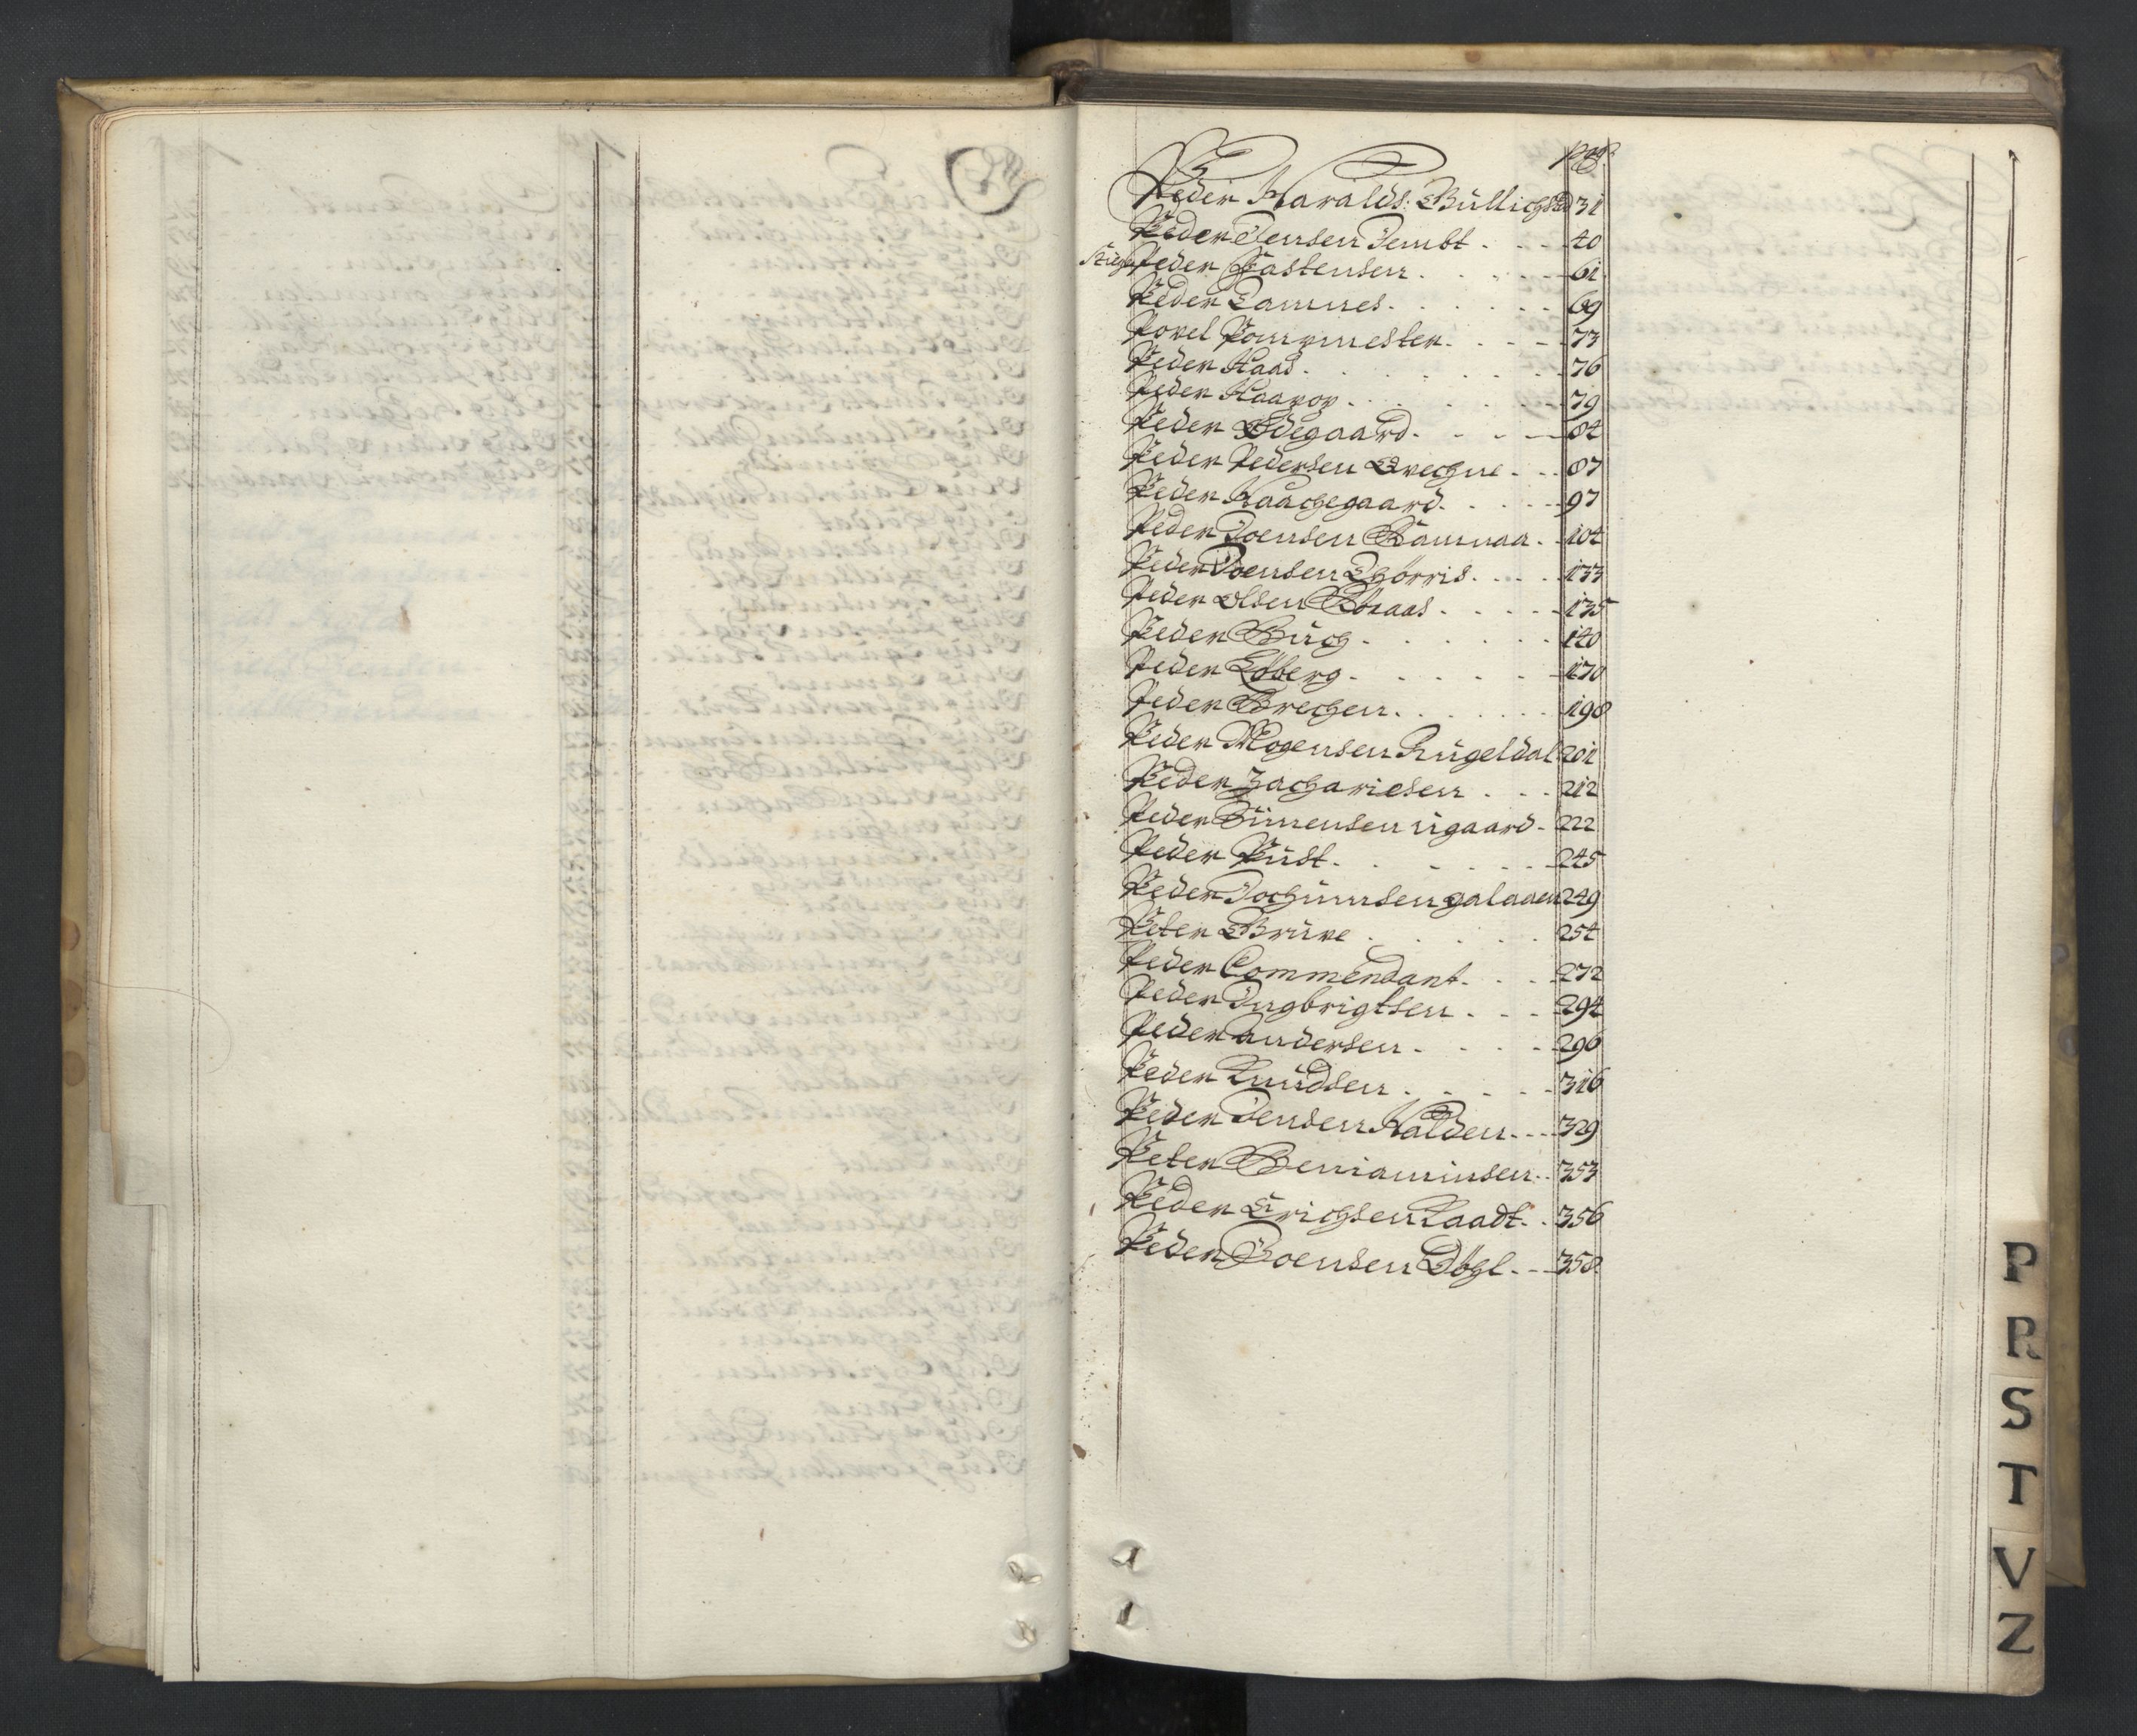 pag:
Peder Haralds: Büllichstad 31
Peder Jensen Jembt 40
Stiger Peder Fastensen 61
Peder Lamnes 69
Povel Pompmester 73
Peder Aaas 76
Peder Aaavov 79
Peder Ødegaard 84
Peder Pedersen Qvechne 87
Peder Haachegaard 97
Peder Joensen Ramnaa 104
Peder Joensen Qvorris 133
Peder Olsen Røraas 135
Peder Burch 140
Peder Løberg 170
Peder Brechen 198
Peder Mogensen Kugeldal 201
Peder Zachariesen 212
Peder Simensen ügaard 222
Peder Püst 245
Peder Jochumsen galaaen 249
Peter Brüve 254
Peder Commendant 272
Peder Ingbrigtsen 294
Peder andersen 296
Peder Knudsen 316
Peder Jensen Halden 329
Peter Beniaminsen 353
Peder Erichsen Kaadt 356
Peder Joensen Døhl 358
P
R
S
T
V
Z